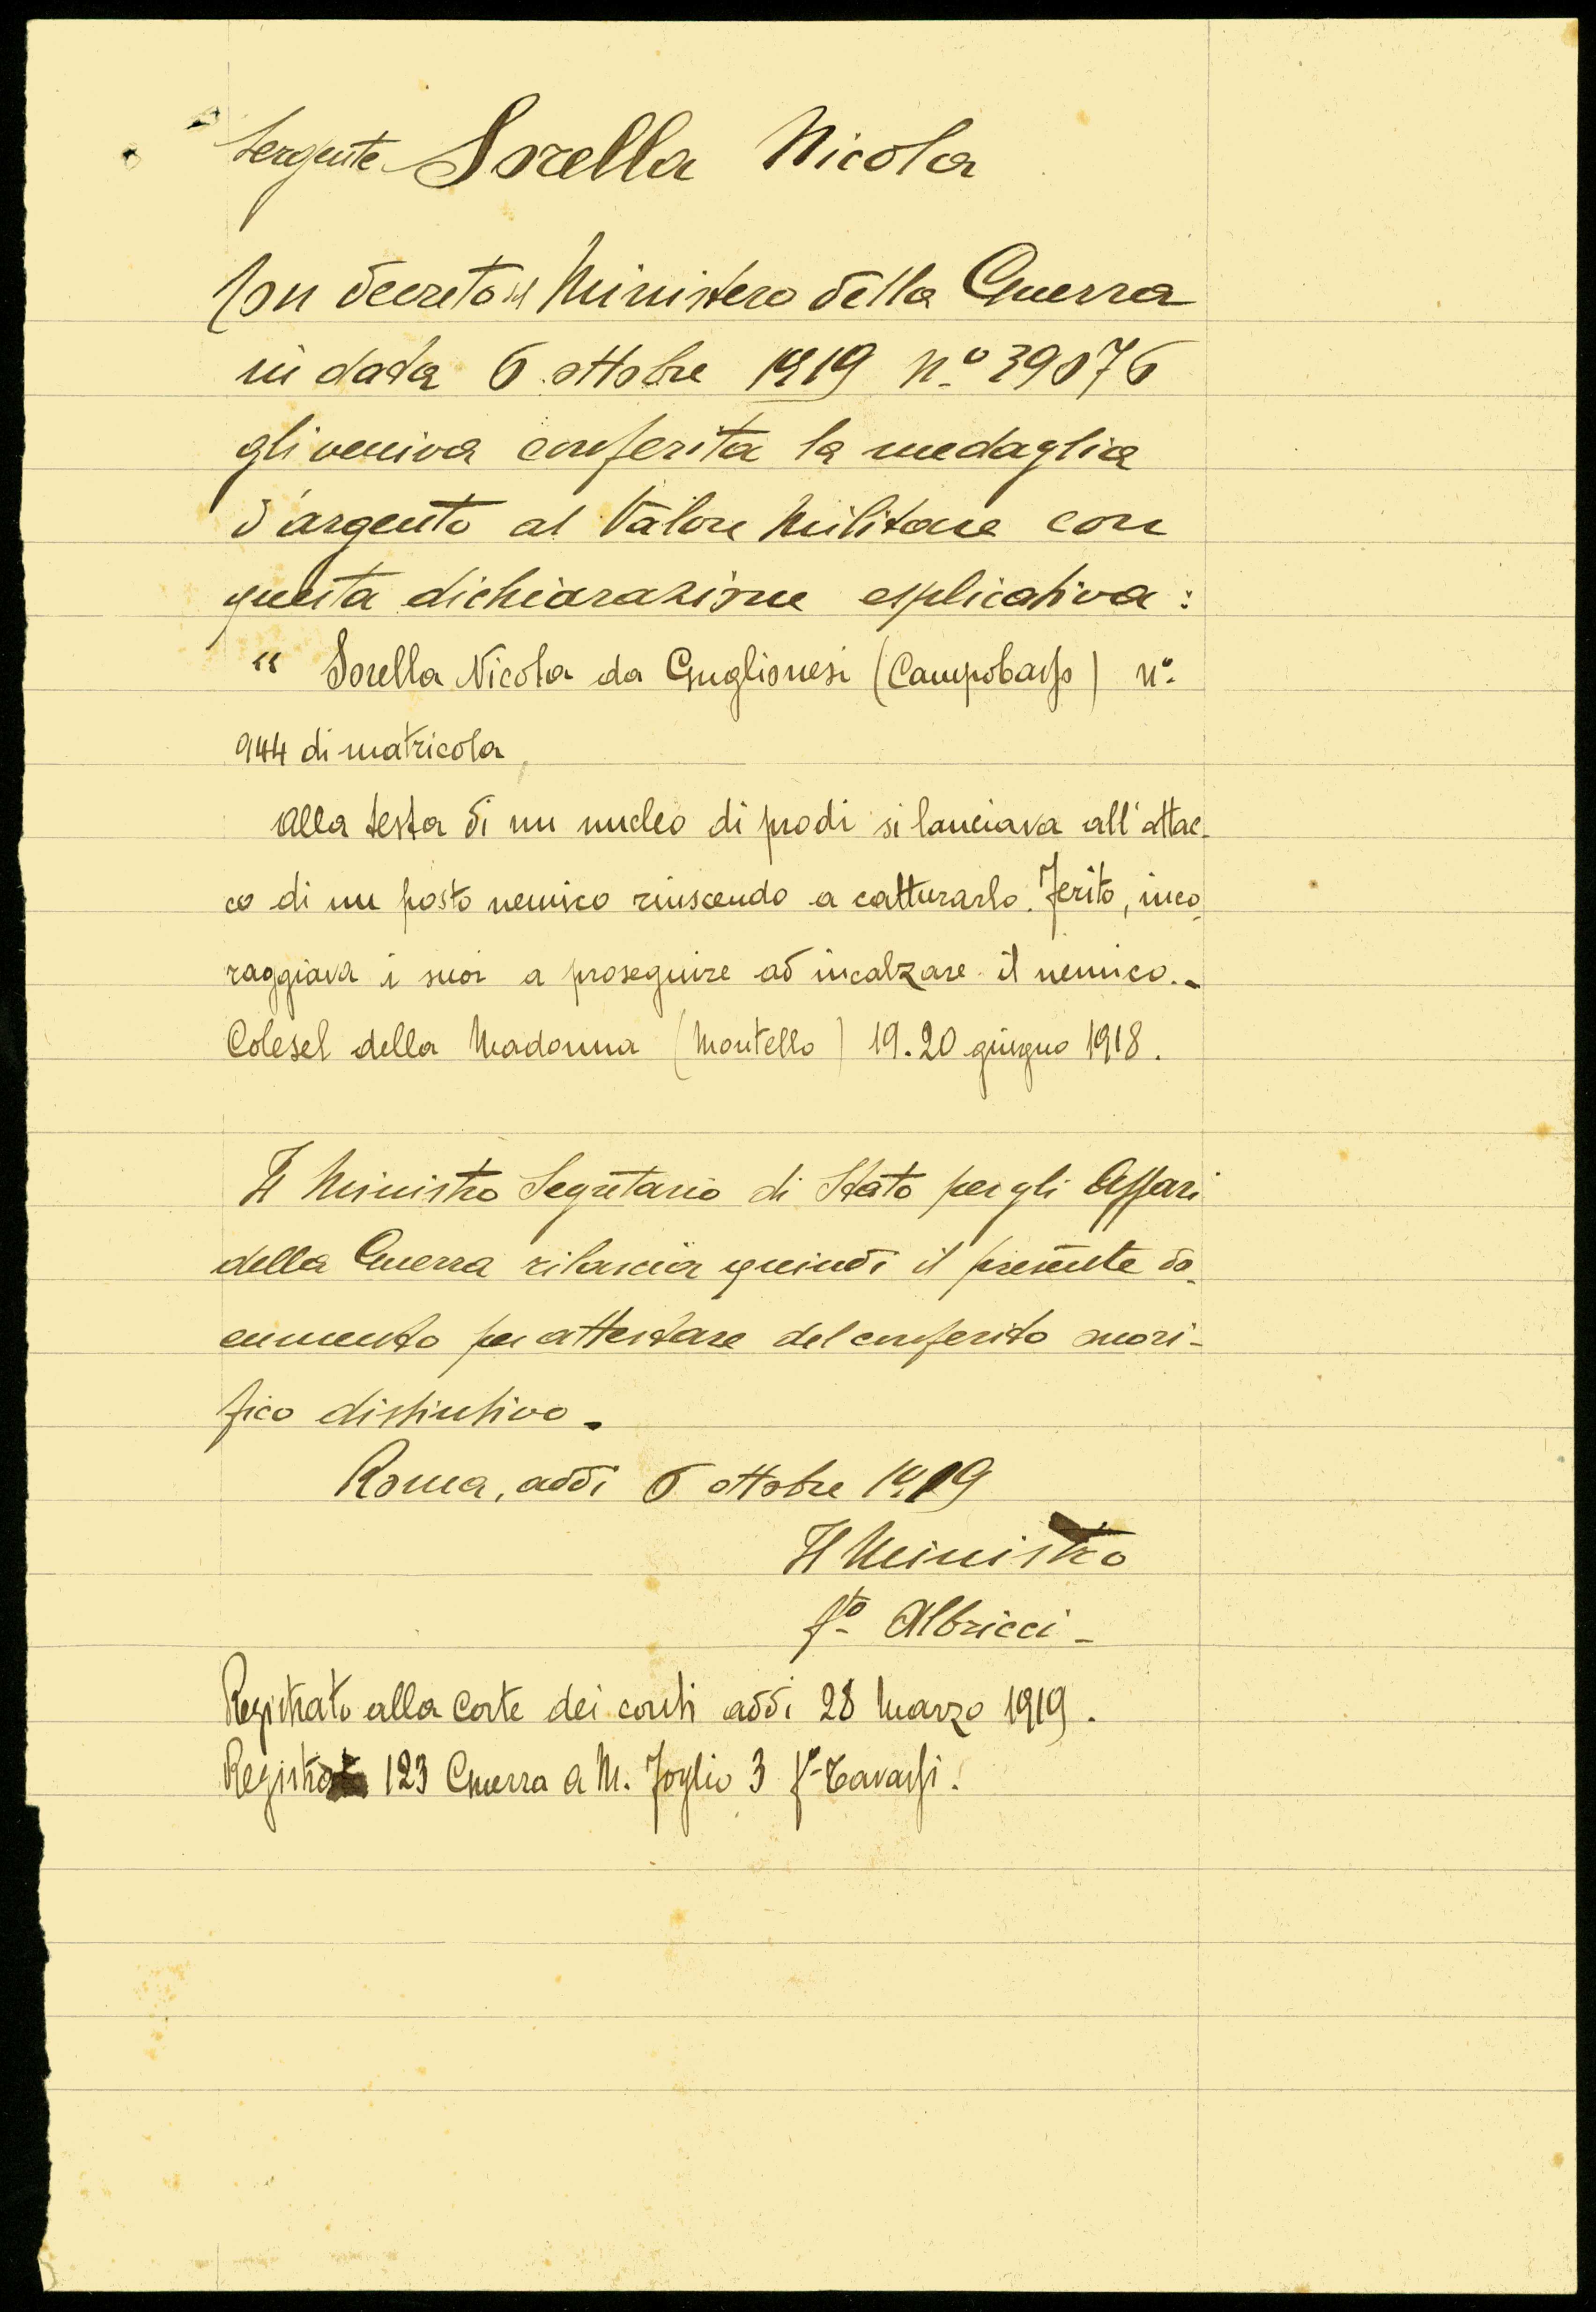 Sergente Sorella Nicola
Con decreto del Ministero della Guerra
in data 6 ottobre 1919 nº 39076
gli veniva conferita la medaglia
d'argento al Valore Militare con
questa dichiarazione esplicativa:
" Sorella Nicola da Guglionesi (Campobasso) nº
944 di matricola,
Alla testa di un nucleo di prodi si lanciava all'attac-
co di un posto nemico riuscendo a catturarlo. Ferito, inco-
raggiava i suoi a proseguire ad incalzare il nemico.-
Colesel della Madonna (Montello) 19.20 giugno 1918.
Il Ministro Segretario di Stato per gli Affari
della Guerra rilascia quindi il presente do-
cumento per attestare del conferito onori-
fico distintivo.
Roma, addì 6 ottobre 1919
Il Ministro
fto Albricci -
Registrato alla Corte dei conti addì 28 Marzo 1919.
123 Guerra a M. Foglio 3 fº Tavassi.